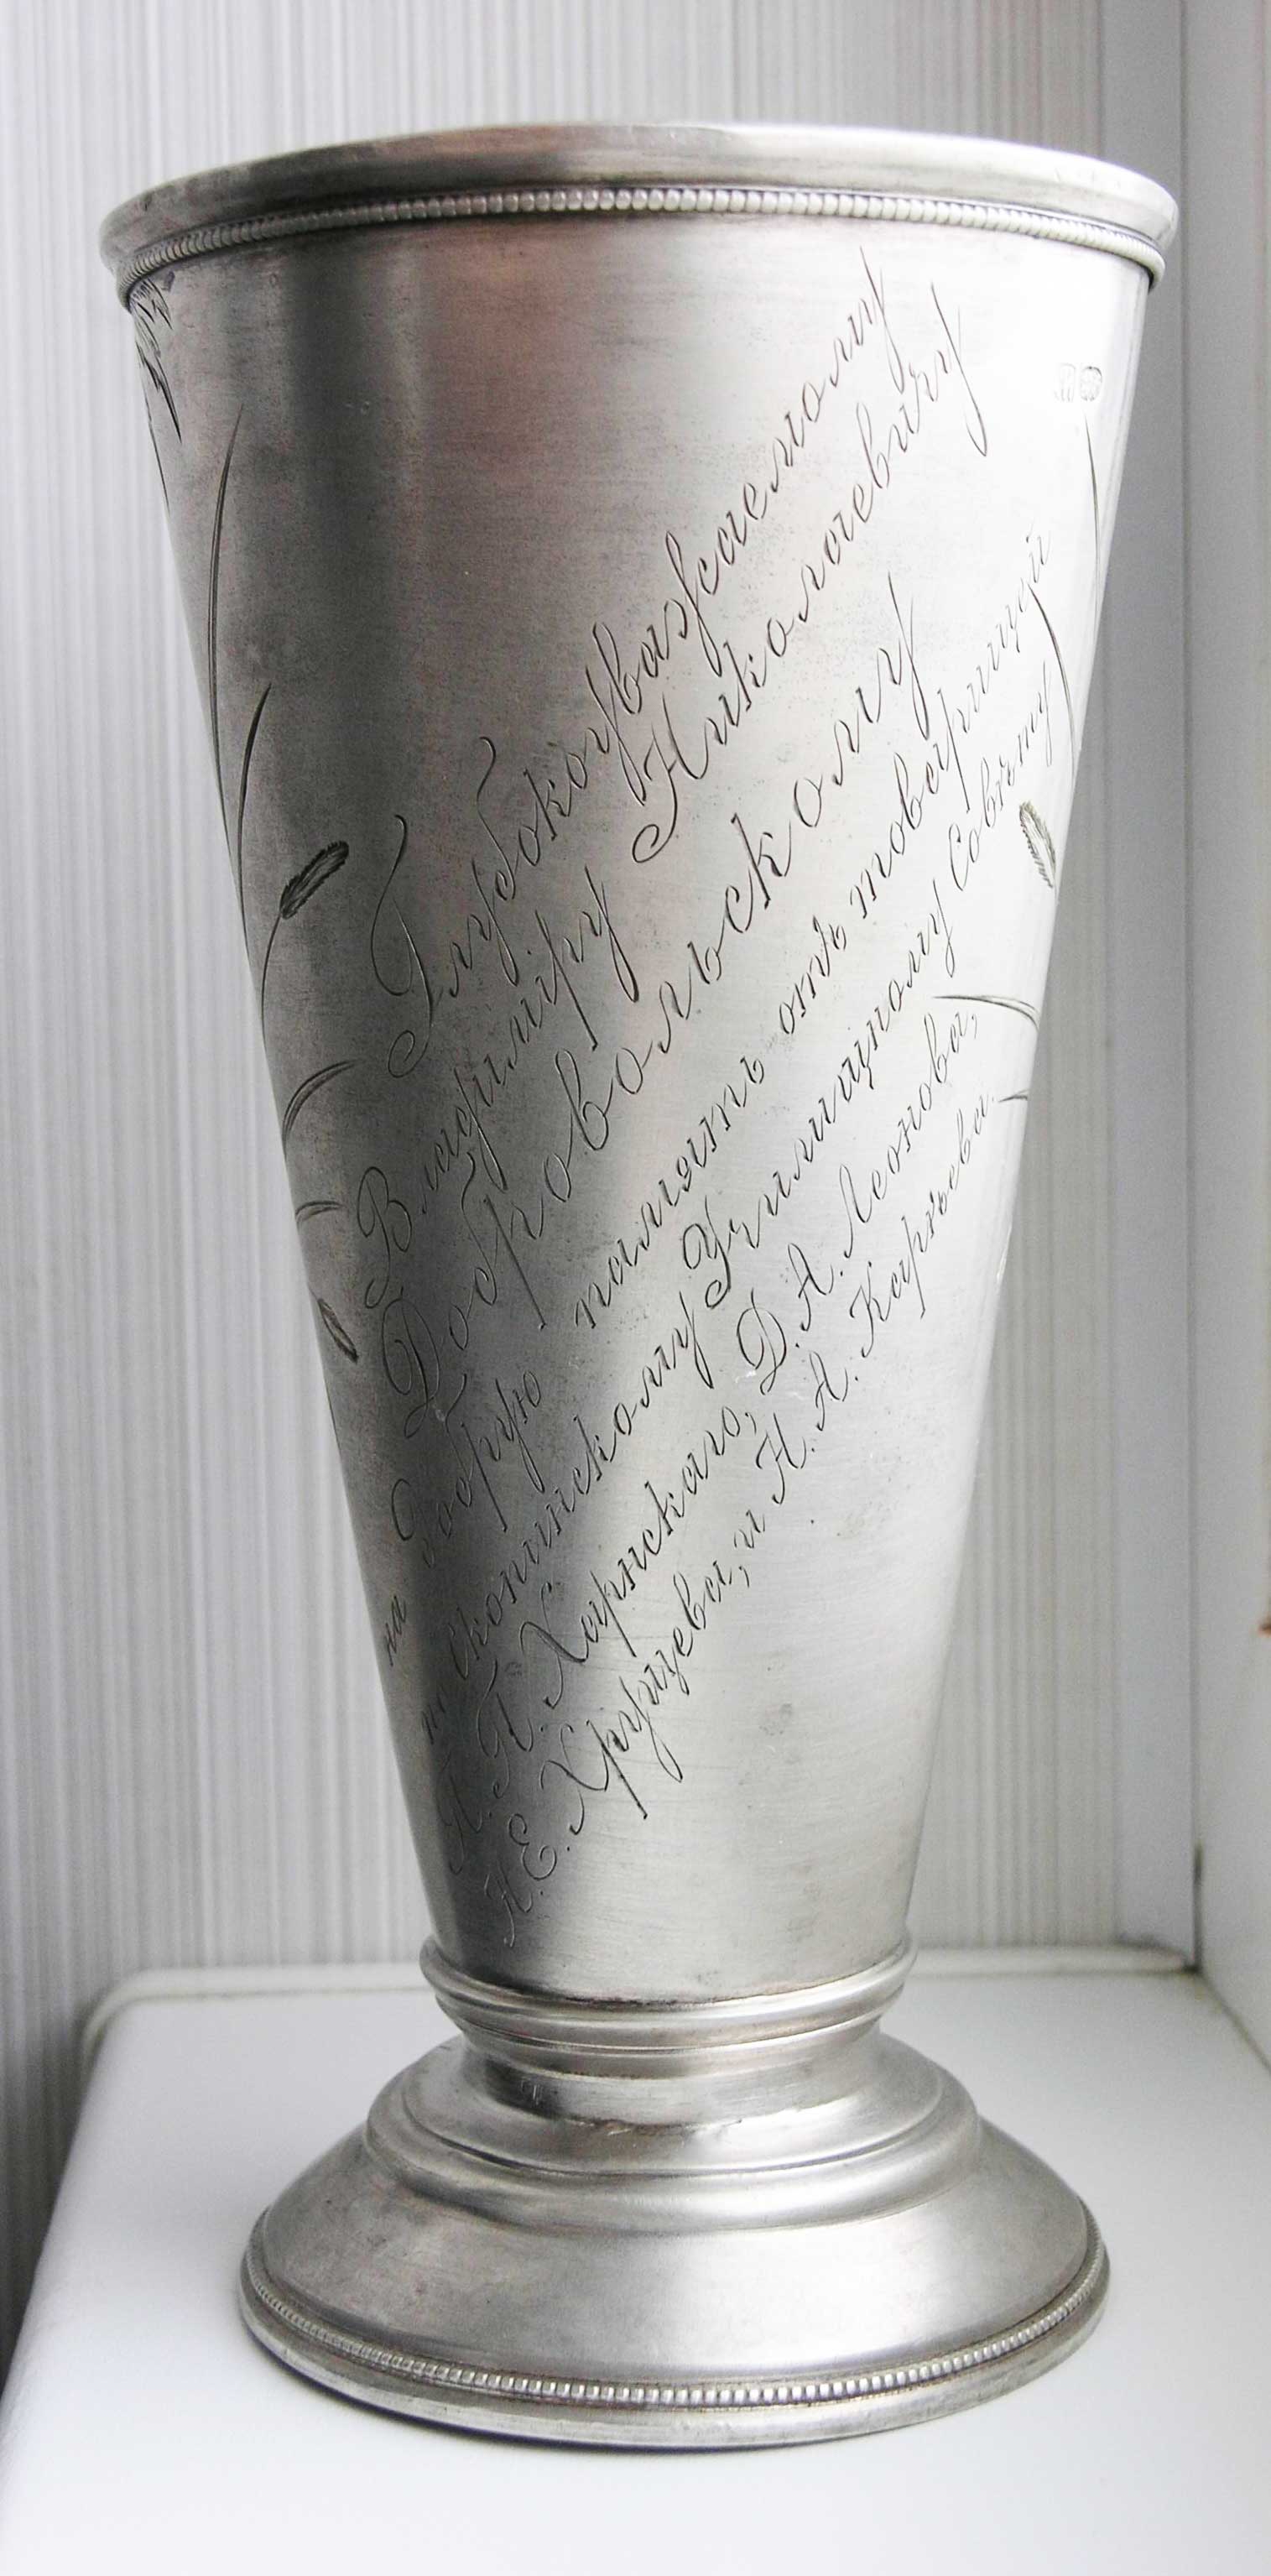 Глубокоуважаемому
Владимiру Николаевичу
Добровольскому
на добрую память отъ товарищей
по Скопинскому Училищному Совѣту
П. Харнскаго, Д. А. Леонова,
Н. Е. Хрущева, и Н. А. Карѣева.